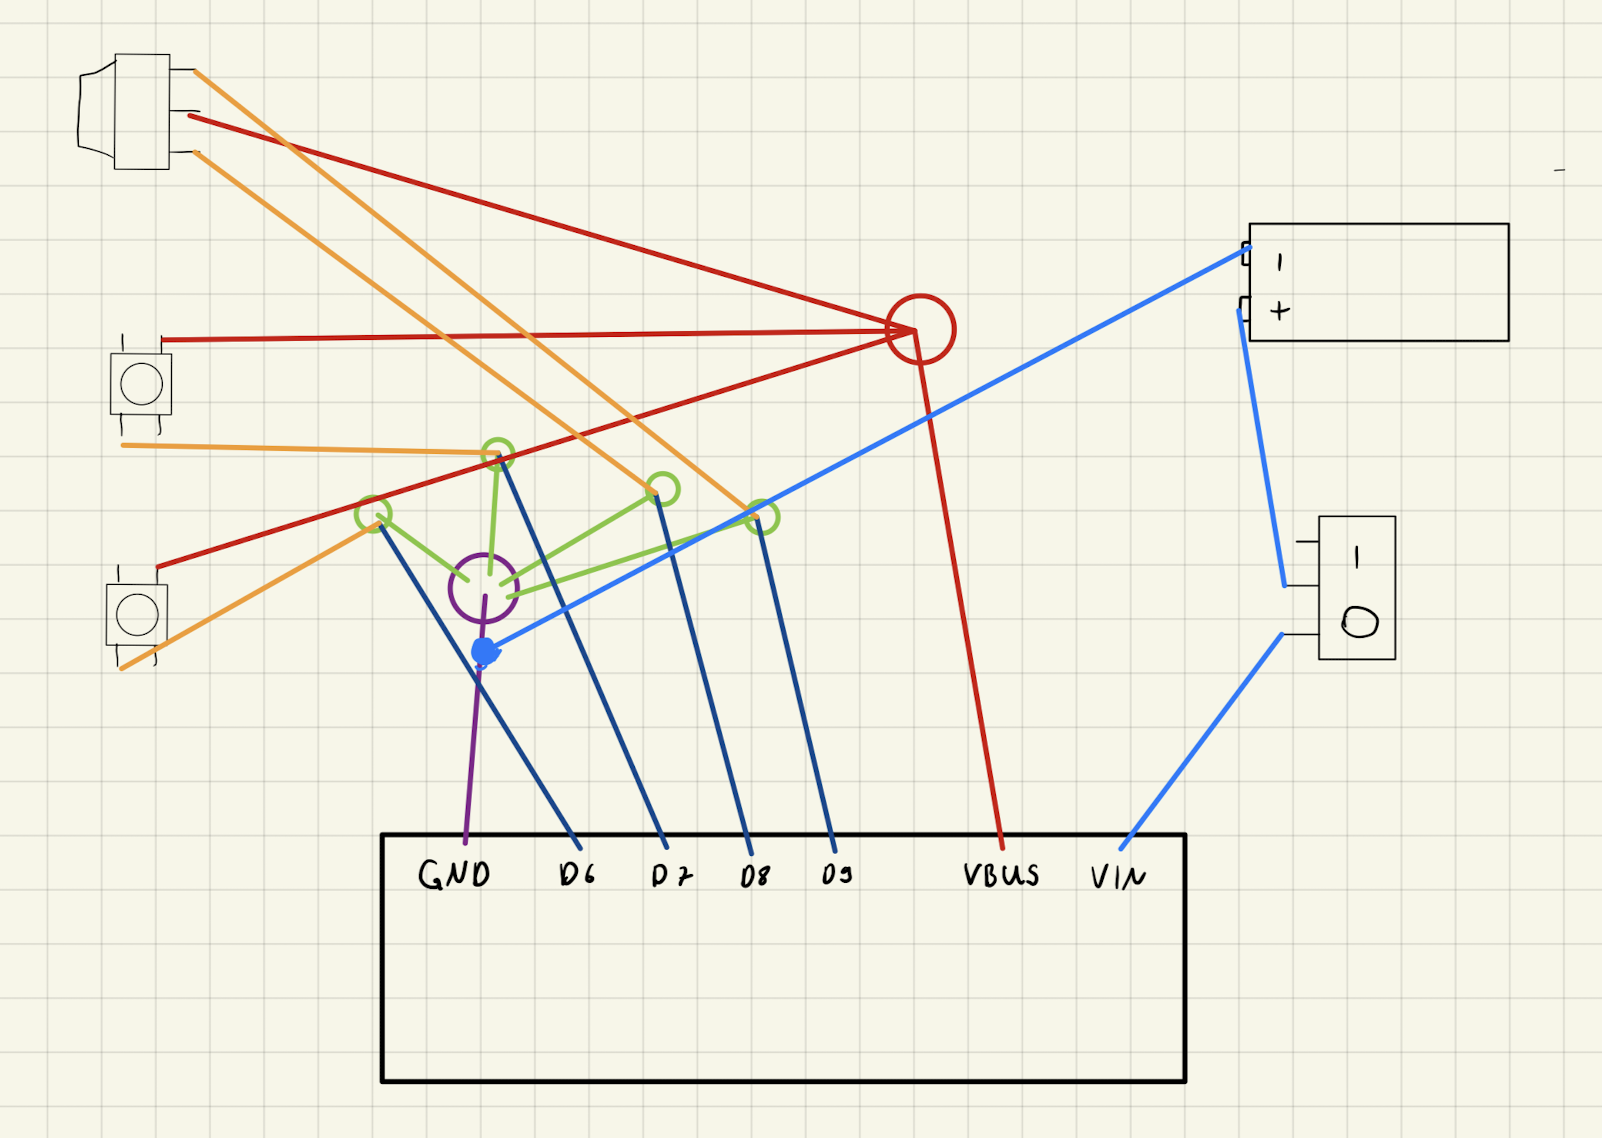 -
+
I
O
GND D6 D7 D8 D9 VBUS VIN